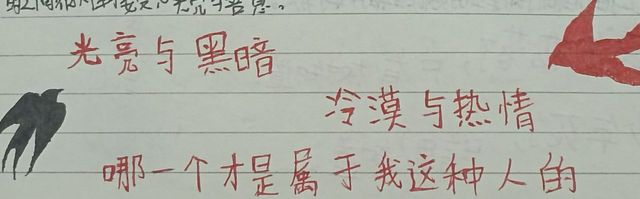 光亮与黑暗
冷漠与热情
哪一个才是属于我这种人的